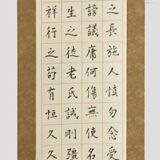 之長施人慎勿念受
謗議庸何傷無使名
生之徒老氏誡剛彊
祥行之苟有恆久久